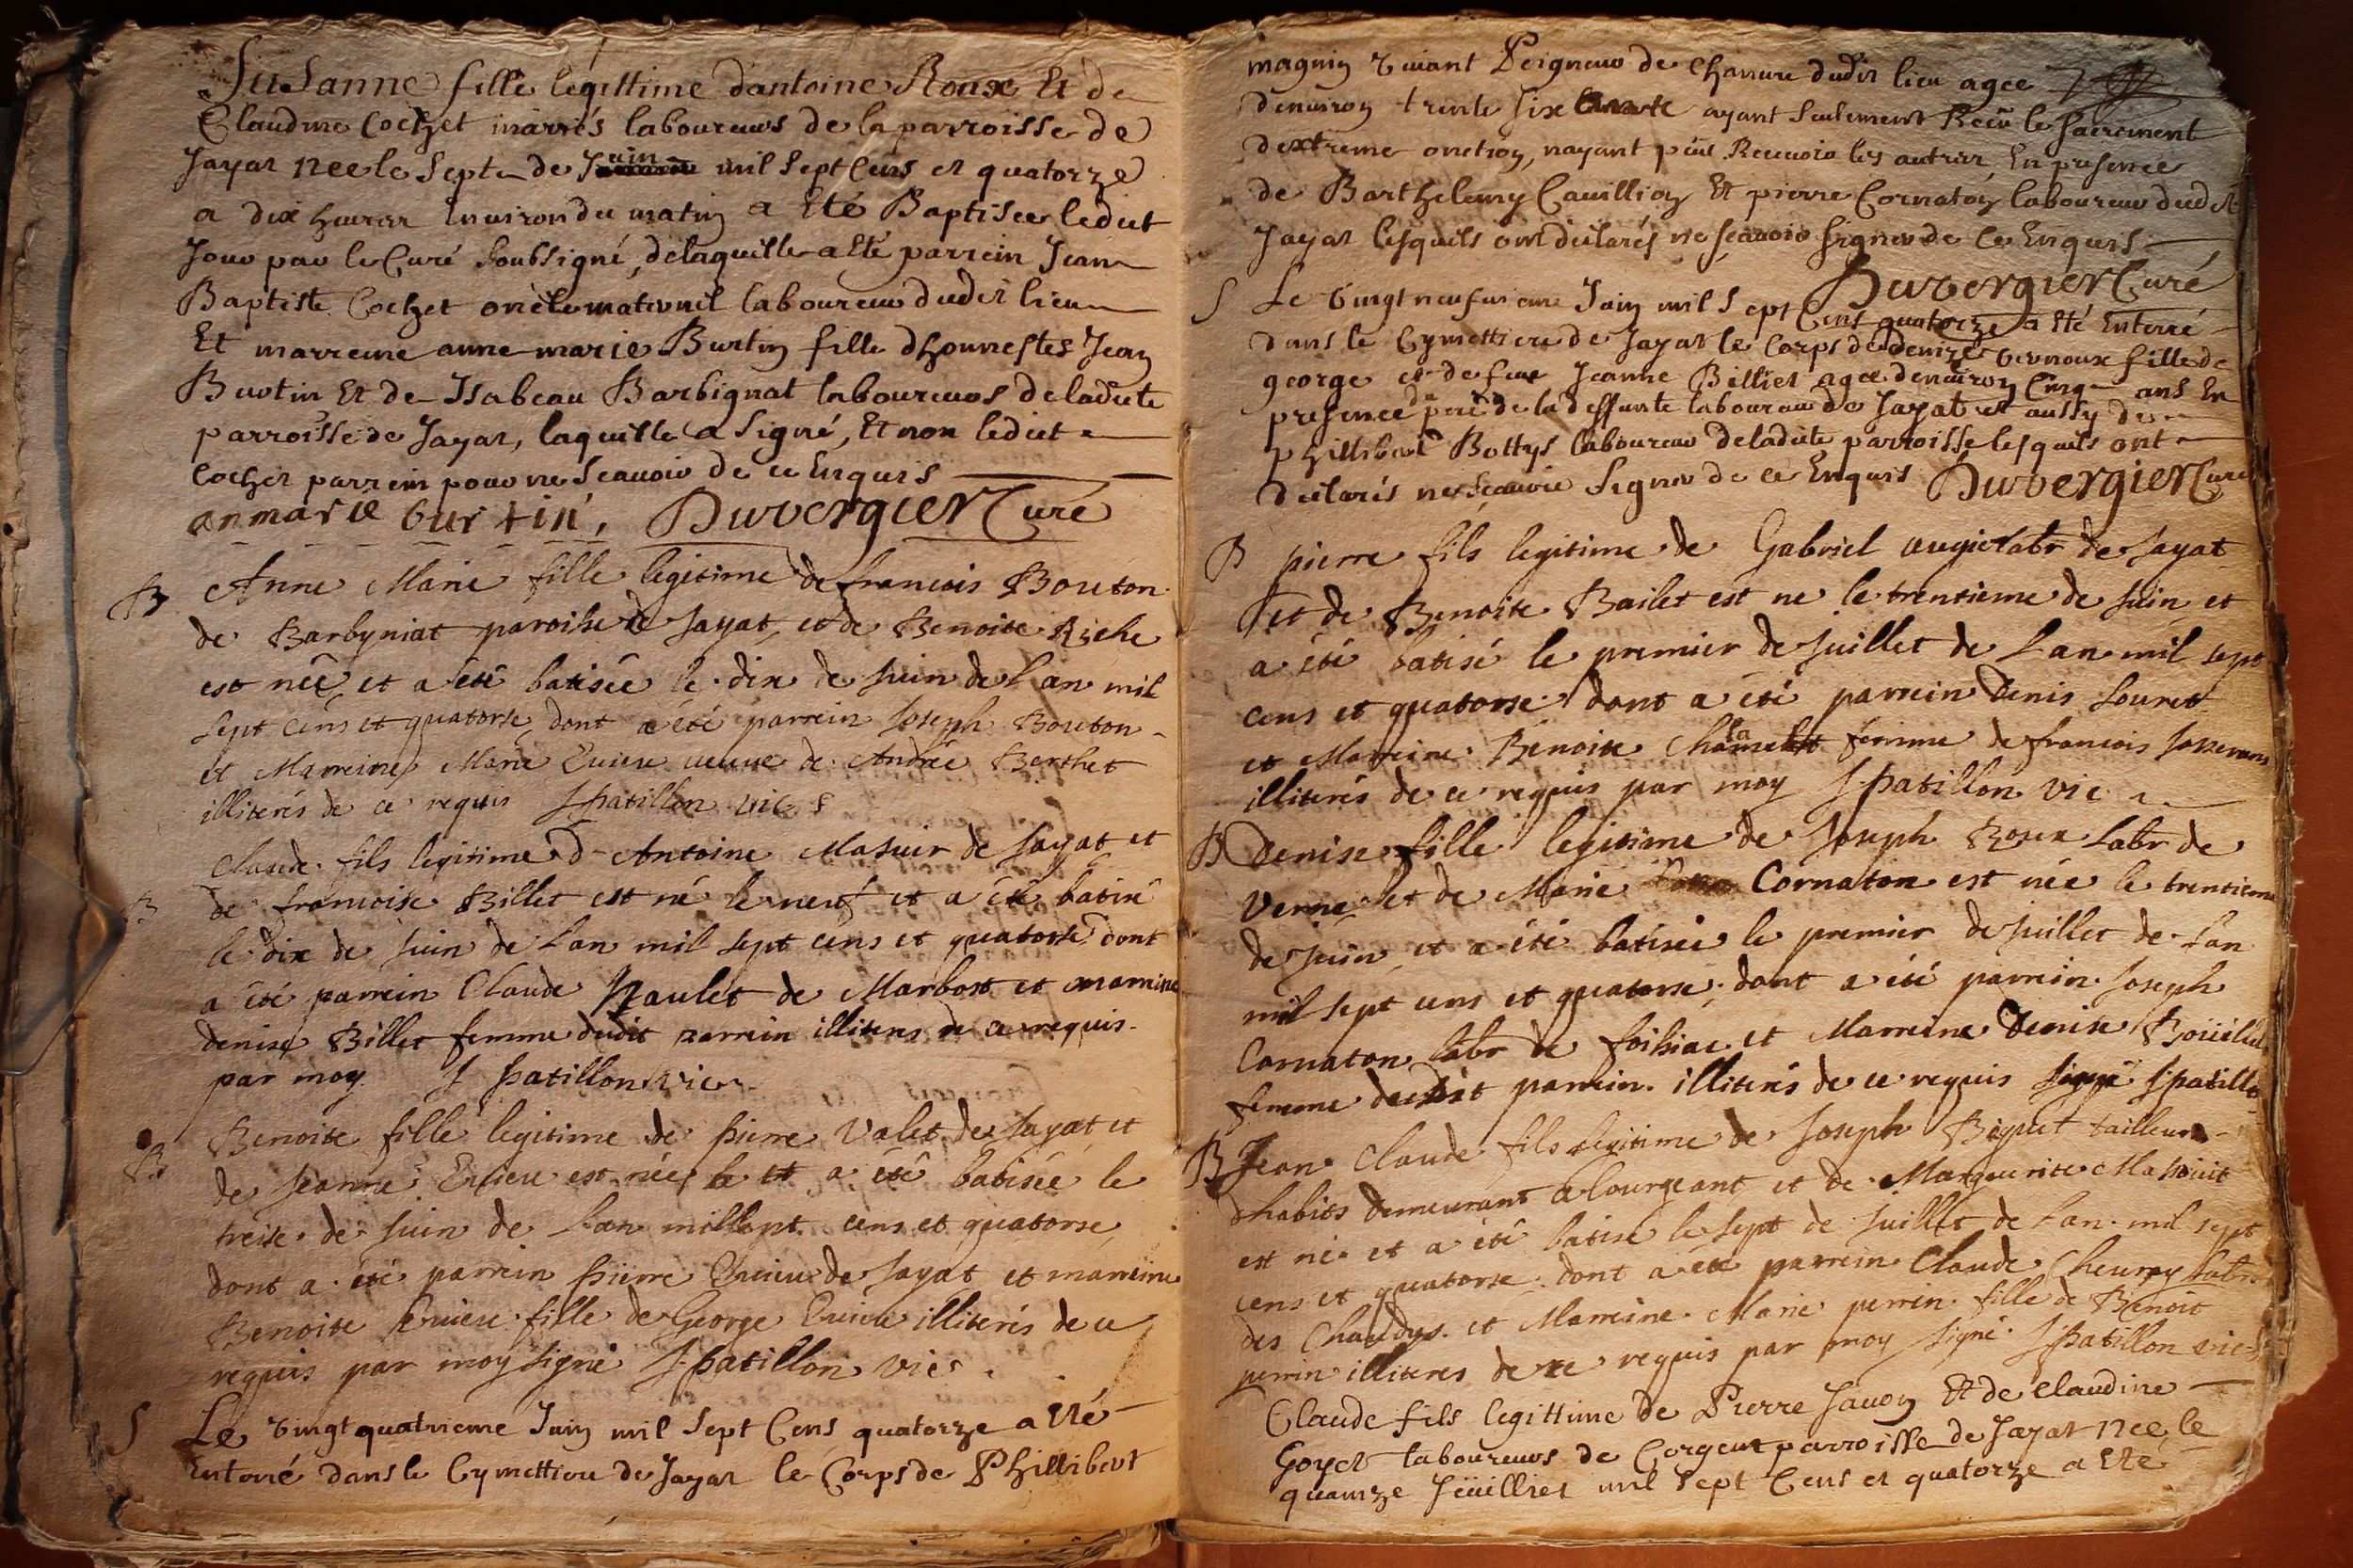 SuSanne fille legittime dantoine Roux Et de
Claudine Cochet mariés laboureurs de la parroisse de
Jayat née le Sept de Juin mil Sept Cens et quatorze
a dix heures Environ du matin a Eté Baptisée ledict
Jour par le Curé Soubsigné, de laquelle a Eté parrein Jean
Baptiste Cochet oncle maternel laboureur dudit lieu
Et marreine anne marie Burtin fille dhonnestes Jean
Burtin Et de Isabeau Barbignat laboureurs de ladicte
parroisse de Jayat, laquelle a Signé, Et non ledict
Cochet parrein pour ne Scavoir de ce Enquis
anmarie burtin, Duvergier Curé
B Anne Marie fille legitime de francois Bouton
de Barbyniat paroisse de Jayat, et de Benoite Riche
est née et a été batisée le dix de juin de l'an mil
sept cens et quatorse, dont a été parrein Joseph Bouton
et Marreine Marie veuve de André Berthet
illiterés de ce requis J. patillon vic
Claude fils legitime d'Antoine Masuir de Jayat et
B de francoise Billet est né le neuf et a été batisé
le dix de juin de l'an mil sept cens et quatorse dont
a été parrein Claude Naulet de Marbost et marreine
denise Billet femme dudit parrein illiteres de ce requis
par moy J patillon vic
B Benoite fille legitime de pierre Valet de Jayat et
de Jeanne est née le et a été batisée le
treise de juin de l'an mil sept cens et quatorse,
dont a été parrein pierre de Jayat et marreine
Benoite fille de George illiterés de ce
requis par moy signé J. patillon vic
S Le vingt quatrieme Juin mil Sept Cens quatorze a Eté
Enterré dans le Cymettiere de Jayat le Corps de Philibert
magnin vivant Peigneur de Chanvre dudit lieu agee
denviron trente Six ayant Seulement Receu le Sacrement
dextreme onction, nayant peu Recevoir les autres En presence
de Barthelemy Cavillion Et pierre Cornaton laboureur dudit
Jayat lesquels ont declarés ne Scavoir Signer de Ce Enquis
Duvergier Curé
S Le vingt neufvieme Juin mil Sept Cens quatorze a Eté Enterré
dans le Cymettiere de Jayat le Corps de denize vernoux fille de
george et de feue Jeanne Billiet agee denviron Cinq ans En
presence du pere de la deffunte laboureur de Jayat et aussy de
philibert Bottys laboureur de ladicte parroisse lesquels ont
declarés ne Scavoir Signer de ce Enquis Duvergier Curé
B pierre fils legitime de Gabriel labr de Jayat
et de Benoite Bailet est ne le trentieme de juin et
a été batisé le premier de juillet de l'an mil sept
cens et quatorse dont a été parrein Denis Louret
et Marreine Benoite femme de francois Josserans
illiterés de ce requis par moy J. patillon vic
B Denise fille legitime de Joseph labr de
Verne et de Marie Cornaton est née le trentieme
de juin, et a été batisée le premier de juillet de l'an
mil sept cens et quatorse, dont a été parrein Joseph
Cornaton labr de foissiac et Marreine Denise
femme dudit parrein illiterés de ce requis signé J patillon
B Jean Claude fils legitime de Joseph Biguet tailleur
dhabits demeurant a Courgeant et de Marguerite
est né et a été batisé le sept de juillet de l'an mil sept
cens et quatorse dont a été parrein Claude Chevrey labr
des Chaudys et Marreine Marie perrin fille de Benoit
perrin illiteres de ce requis par moy signé J patillon vic
Claude fils legittime de Pierre Savon Et de Claudine
Goyet laboureurs de Corgent parroisse de Jayat née le
quainze Jüilliet mil Sept Cens et quatorze a Eté